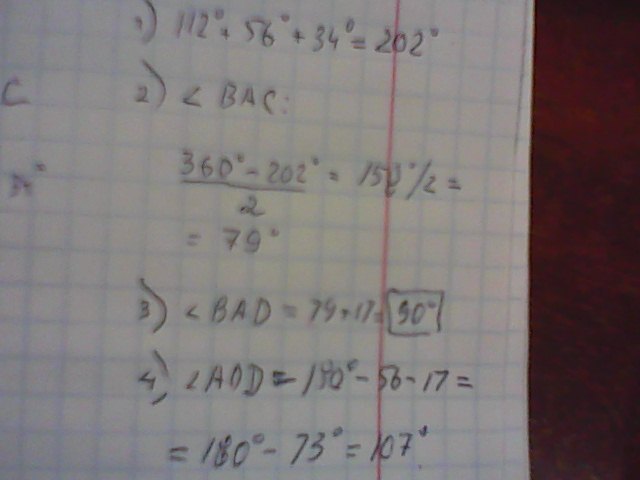 1) 112° + 56° + 34° = 202°
C
2) < BAC:
34°
360° - 202° = 158°/2 =
2
= 79°
3) < BAD = 79 + 17 = 90°
4) < AOD = 180° - 56 - 17 =
= 180° - 73° = 107°